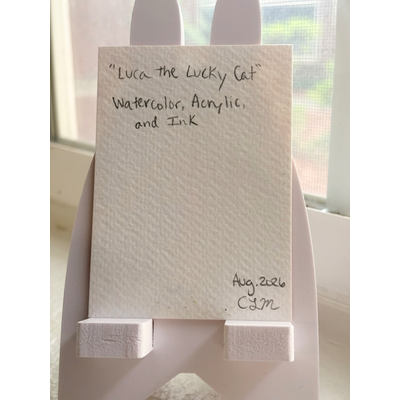 "Luca the Lucky Cat"
Watercolor, Acrylic,
and Ink
Aug. 2026
CLM